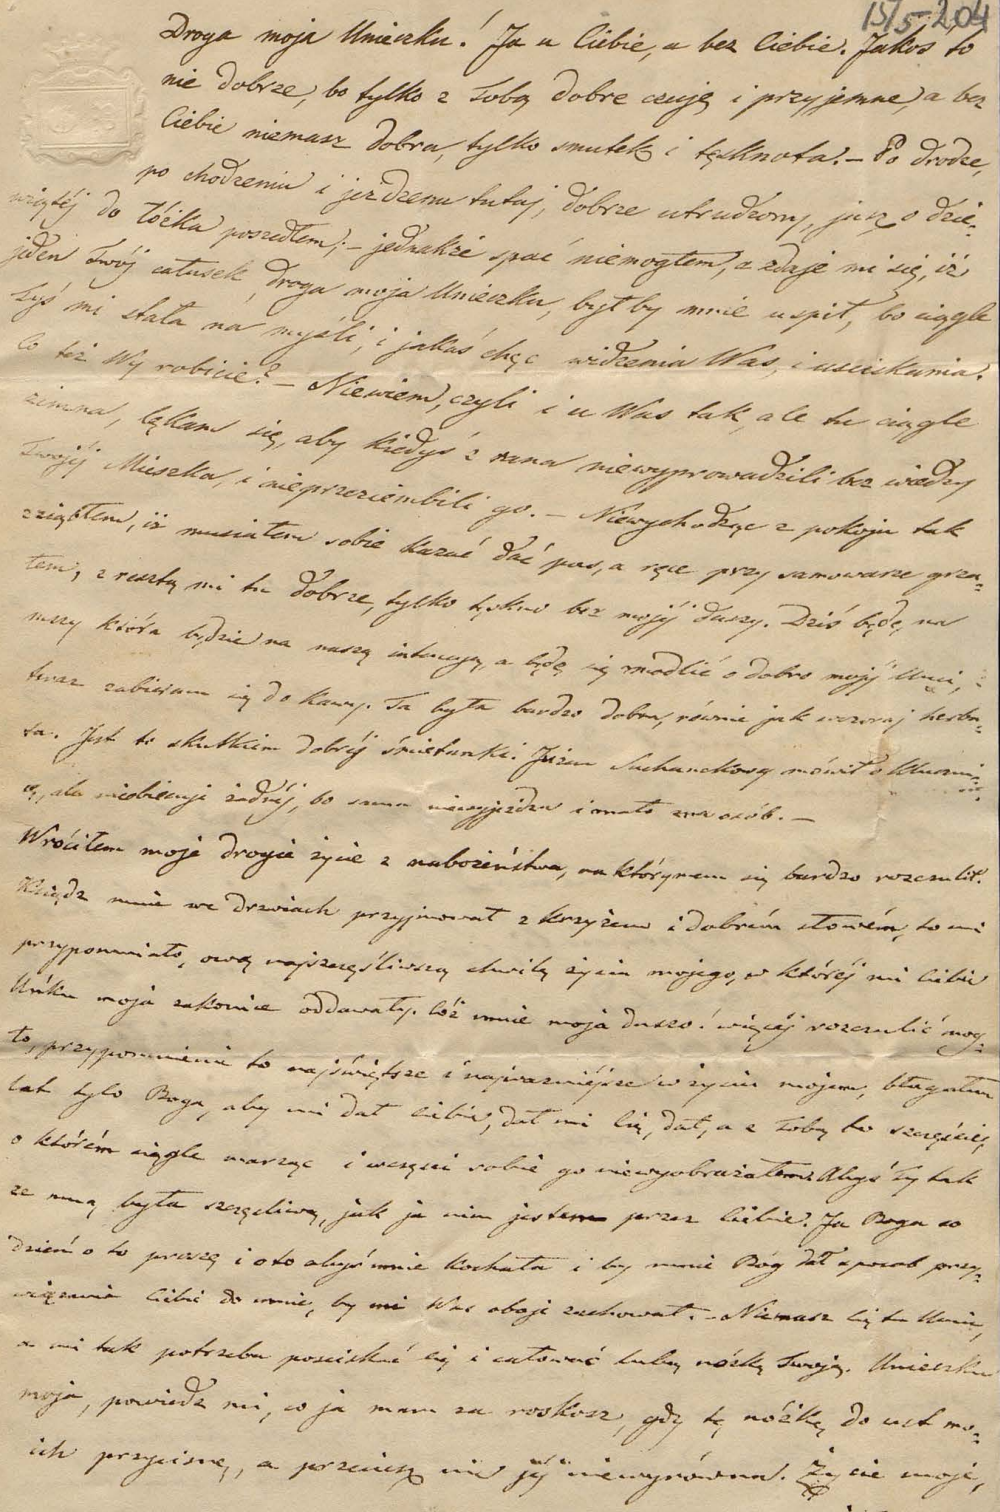 15/5-204
Droga moja Unieczku! Ja u Ciebie, a bez Ciebie. Jakoś to
nie dobrze, bo tylko z Tobą dobre czuję i przyjemne, a bez
Ciebie niemasz dobra, tylko smutek i tęsknota. – Po drodze,
po chodzeniu i jeżdzeniu tutaj, dobrze utrudzony, już o dzie-
wiątéj do łóżka poszedłem; – jednakże spać niemogłem, a zdaje mi się, iż
jeden Twój całusek, droga moja Unieczku, byłby mnie uspił, bo ciągle
Tyś mi stała na myśli, i jakaś chęć widzenia Was, i uściskania.
Co też Wy robicie? – Niewiem, czyli i u Was tak, ale tu ciągle
zimna, lękam się, aby kiedyś z rana niewyprowadzili bez wiedzy
Twojéj Mieszka, i nieprzeziembili go. – Niewychodząc z pokoju tak
zziąbłem, iż musiałem sobie kazać dać pas, a ręce przy samowarze grza-
łem, z resztą mi tu dobrze, tylko tęskno bez mojéj duszy. Dziś będę na
mszy która będzie na naszą intencyą, a będę się modlić o dobro mojéj Uni,
teraz zabieram się do kawy. Ta była bardzo dobra, równie jak wczoraj herba-
ta. Jest to skutkiem dobréj śmietanki. Suchanekową mówił o
ale nieobiecuje żadnéj, bo sama niewyjeżdza i mało zna osób. –
Wróciłem moje drogie życie z nabożeństwa, na którymem się bardzo rozczulił.
Ksiądz mnie we drzwiach przyjmował z krzyżem i dobrém słowém, to mi
przypomniało, ową najszczęśliwszą chwilę życia mojego, w któréj mi Ciebie
Uńku moja zakonice oddawały. Cóż mnie moja duszo! więcéj rozczulić mog-
ło, przypomnienie to najświętsze i najważniejsze w życiu mojem, błagałem
lat tylo Boga, aby mi dał Ciebie, dał mi Cię, dał, a z Tobą to szczęście,
o którém ciągle marząc i wczęści sobie go niewyobrażałem. Abyś Ty tak
ze mną była szczęśliwą, jak ja nim jestem przez Ciebie. Ja Boga co
dzień o to proszę i o to abyś mnie kochała i by mnie Bóg dał sposób przy-
wiązania Ciebie do mnie, by mi Was oboje zachował. – Niemasz Cię tu Uniu,
a mi tak potrzeba pościskać Cię i całować lubą nóżkę Twoją. Unieczku
moja, powiedz mi, co ja mam za roskosz, gdy tę nóżkę do ust mo-
ich przycisnę, a przecież nic jéj niewyrówna. Życie moje,